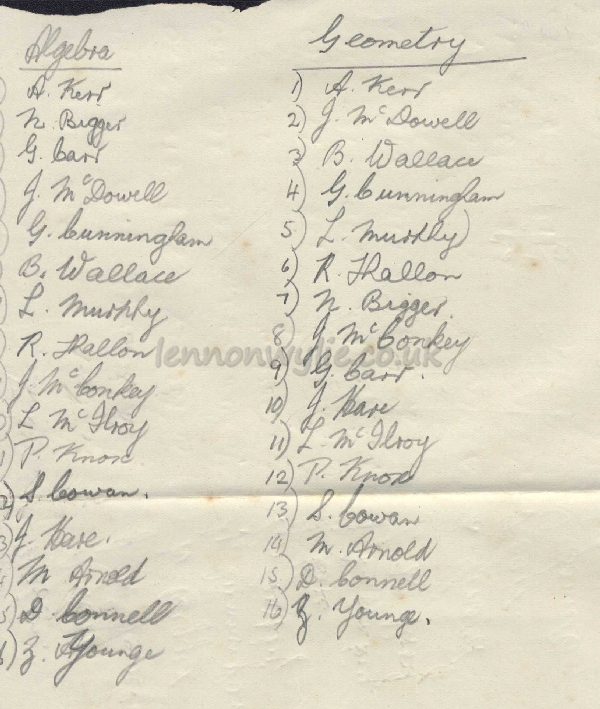 Algebra
A. Kerr
N. Bigger
G. Carr
J. McDowell
G. Cunningham
B. Wallace
L. Murphy
R. Hallon
J. McConkey
L McIlroy
P. Knox
2) S. Cowan.
3) J. Hare.
M Arnold
5) D. Connell
6) Z. Younge
Geometry
1) A. Kerr
2) J. McDowell
3) B. Wallace
4) G. Cunningham
5) L. Murphy
6) R. Hallon
7) N. Bigger.
8) J McConkey
9) G. Carr.
10) J. Hare
11) L. McIlroy
12) P. Knox
13) S. Cowan
14) M. Arnold
15) D. Connell
16) Z. Younge.
lennonwylie.co.uk